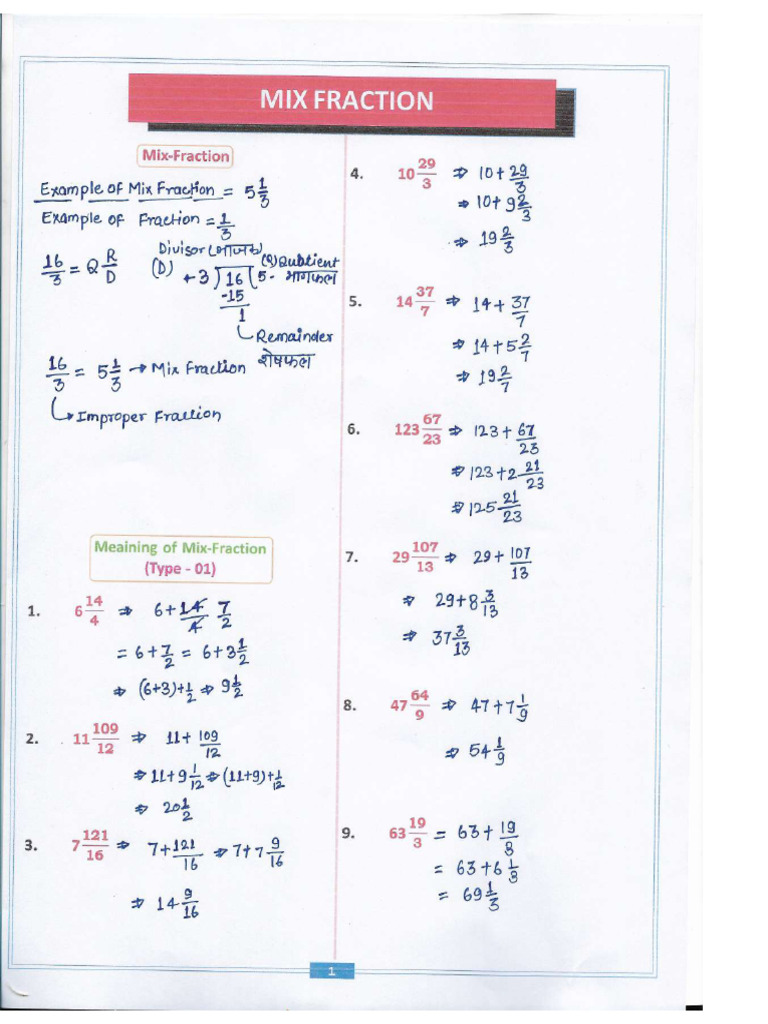 MIX FRACTION
Mix-Fraction
Example of Mix Fraction = 5 1/3
Example of Fraction = 1/3
16/3 = Q R/D
Divisor (भाजक)
(D) ← 3 ) 16 ( 5 - भागफल
(Q) Qubtient
-15
1
Remainder
शेषफल
16/3 = 5 1/3 → Mix Fraction
↳ Improper Fraction
Meaining of Mix-Fraction
(Type - 01)
1. 6 14/4 ⇒ 6 + 14/4 7/2
= 6 + 7/2 = 6 + 3 1/2
⇒ (6+3) + 1/2 ⇒ 9 1/2
2. 11 109/12 ⇒ 11 + 109/12
⇒ 11 + 9 1/12 ⇒ (11+9) + 1/12
⇒ 20 1/2
3. 7 121/16 ⇒ 7 + 121/16 ⇒ 7 + 7 9/16
⇒ 14 9/16
4. 10 29/3 ⇒ 10 + 29/3
⇒ 10 + 9 2/3
⇒ 19 2/3
5. 14 37/7 ⇒ 14 + 37/7
⇒ 14 + 5 2/7
⇒ 19 2/7
6. 123 67/23 ⇒ 123 + 67/23
⇒ 123 + 2 21/23
⇒ 125 21/23
7. 29 107/13 ⇒ 29 + 107/13
⇒ 29 + 8 3/13
⇒ 37 3/13
8. 47 64/9 ⇒ 47 + 7 1/9
⇒ 54 1/9
9. 63 19/3 = 63 + 19/3
= 63 + 6 1/3
= 69 1/3
1